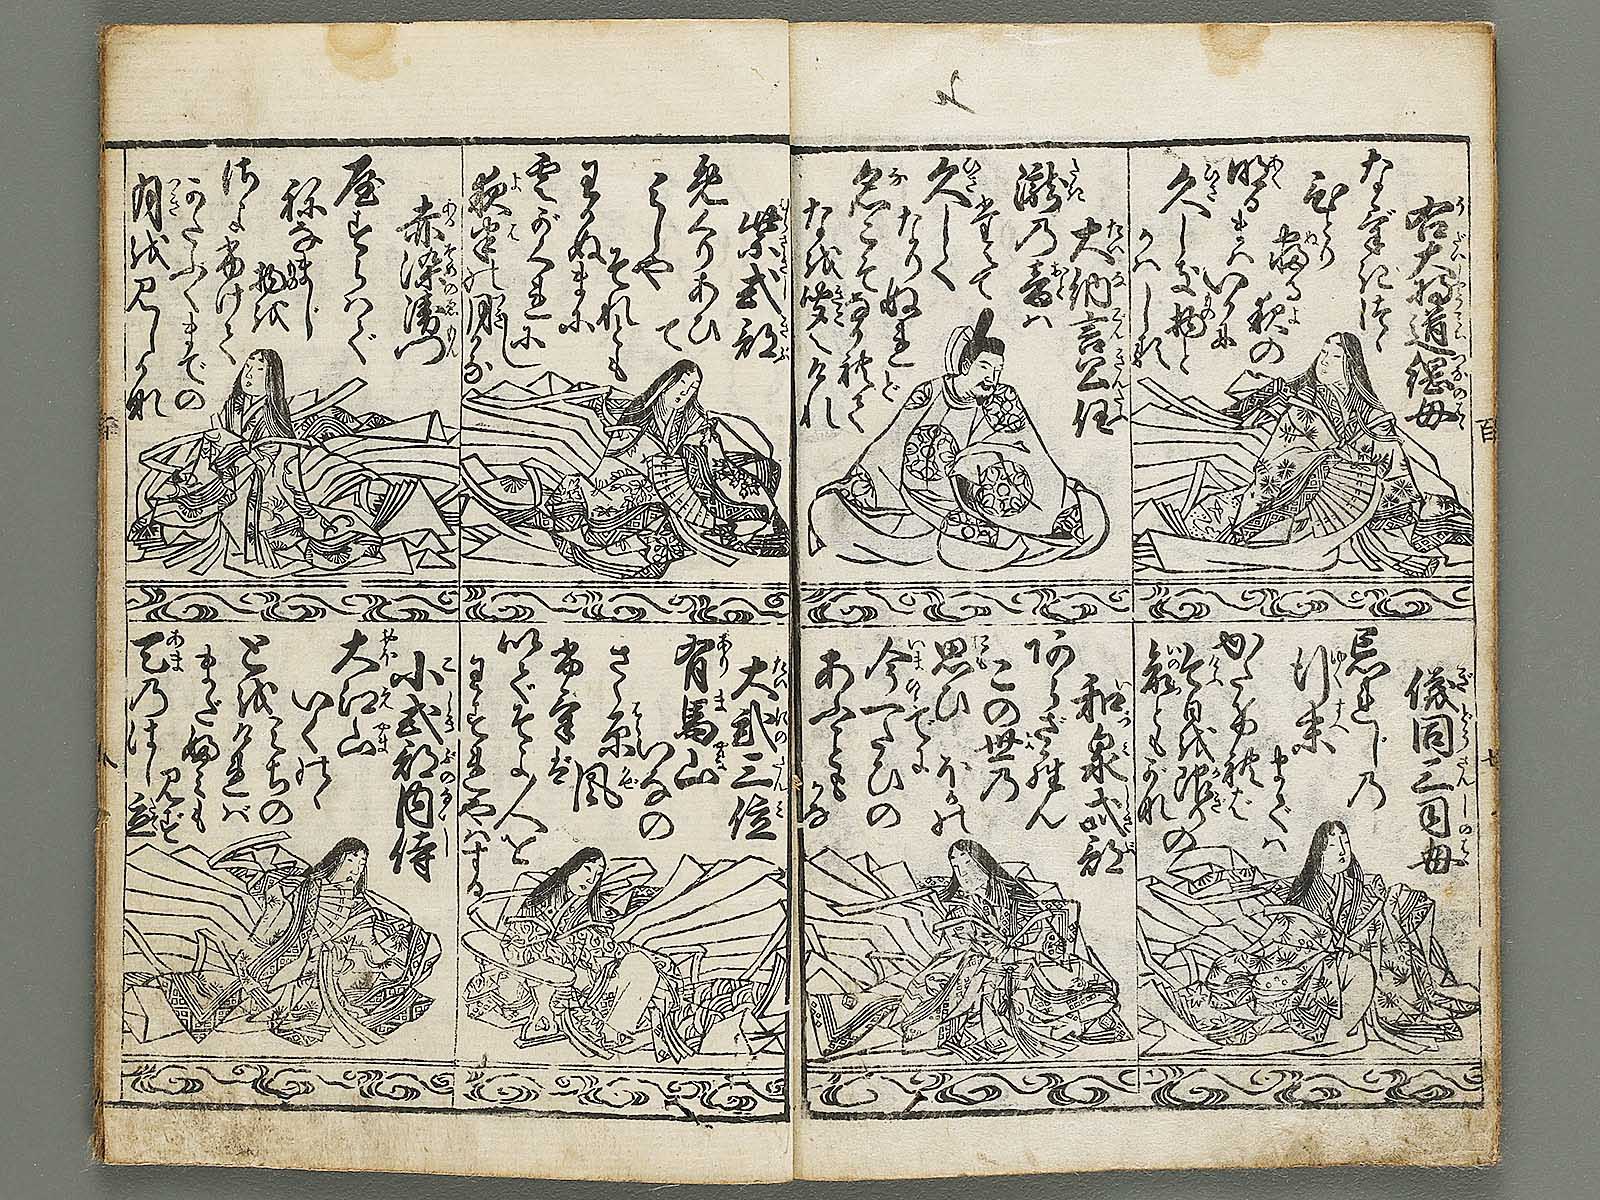 右大将道綱母
なげきつゝ
ひとり
寐る夜の
明るまハいかに
久しき物と
かハしる
大納言公任
瀧乃音ハ
たえて
久しく
なりぬれど
名こそながれて
なを聞えけれ
儀同三司母
忘れじ乃
行末
までハ
かたければ
けふを限りの
命ともがな
和泉式部
あらざらん
この世乃
ほかの
思ひでに
今一たびの
あふことも
がな
紫式部
めぐりあひ
て
見しや
それとも
わかぬまに
雲がくれに
し
夜半の月かな
赤染衛門
屋すらハで
ねなまし
物を
さよ更けて
かたふくまでの
月を見しかな
大弐三位
有馬山
いなの
さゝ原
風
いでそよ人を
わすれやハする
小式部内侍
大江山
いくの
みちの
とをければ
まだふみも
見ず
天乃はし立
百
七